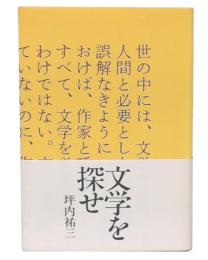 世の中には、文
人間と必要とし
誤解なきように
おけば、作家と
すべて、文学を
わけではない。
ていないのに、
文学を
探せ
坪内祐三